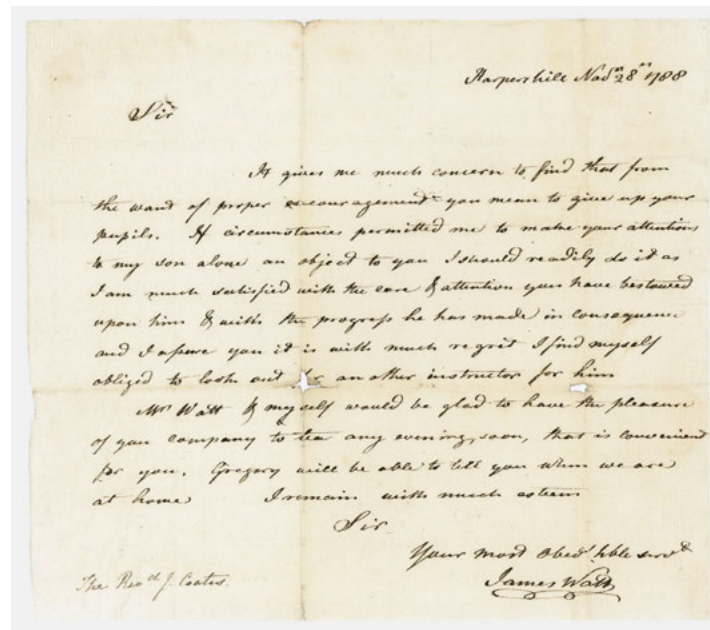 Harpershill Nov.r 28th 1788
Sir
It gives me much concern to find that from
the want of proper encouragement you mean to give up your
pupils. If circumstances permitted me to make your attentions
to my son alone an object to you I should readily do it as
I am much satisfied with the care & attention you have bestowed
upon him & with the progress he has made in consequence
and I assure you it is with much regret I find myself
obliged to look out for another instructor for him
Mrs Watt & myself would be glad to have the pleasure
of you company to tea any evening soon, that is convenient
for you. Gregory will be able to tell you when we are
at home I remain with much esteem
Sir
Your most Obed.t hble serv.t
James Watt
The Rev.d J. Coates.